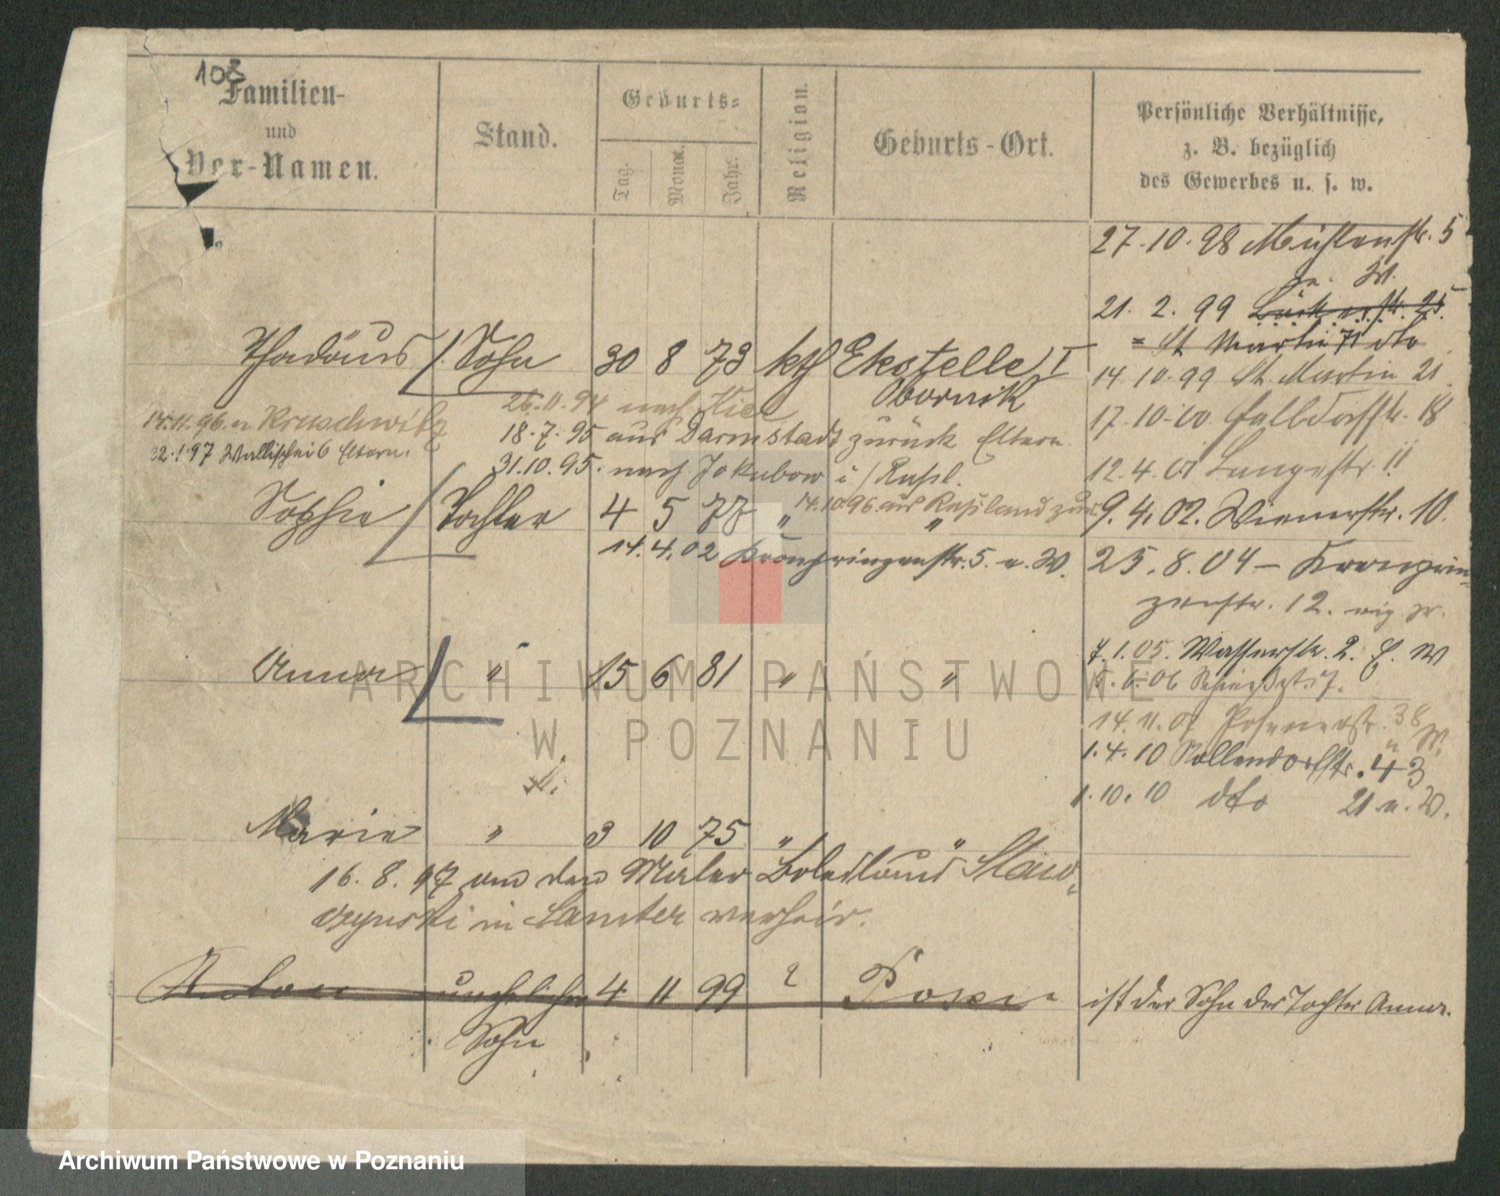 108
Familien-
und
Vor-Namen.
Stand.
Geburts-
Tag.
Monat.
Jahr.
Religion.
Geburts-Ort.
Persönliche Verhältnisse,
z. B. bezüglich
des Gewerbes u. s. w.
27.10.98 Mühlenstr. 5
21. 2. 99 Bäckerstr. 25
= St Martin 71 dto
14.10.99 St. Martin 21
Thadäus Sohn 30 8 73 kth Ekstelle I
Obornik
17.10.00 Halbdorfstr. 18
26.11.94 nach
14.11.96. n Kruschwitz
18.7.95 aus Darmstadt zurück Eltern
22.1.97 Wallischei 6 Eltern.
31.10.95. nach Jokubow i/Rußl.
12.4.01 Langestr. 11
14.10.96. aus Rußland zur
Sophie Tochter 4 5 78 " "
9.4.02. Wienerstr. 10.
14.4.02 Kronprinzenstr. 5. u. W.
25.8.04 – Kronprin-
zenstr. 12.
7.1.05. Wasserstr. 2. E. W
Anna " 15 6 81 " "
14.11.07 Posenerstr. 38
1.4.10 Nollendorfstr. 43
1.10.10 dto 21 u. W.
Marie " 3 10 75 " "
16.8.97 an den Maler Boleslaus Staw-
czynski in Samter verheir.
Anton unehelicher 4 11 99 ? Posen
Sohn
ist der Sohn der Tochter Anna.
ARCHIWUM PAŃSTWOWE
W POZNANIU
Archiwum Państwowe w Poznaniu